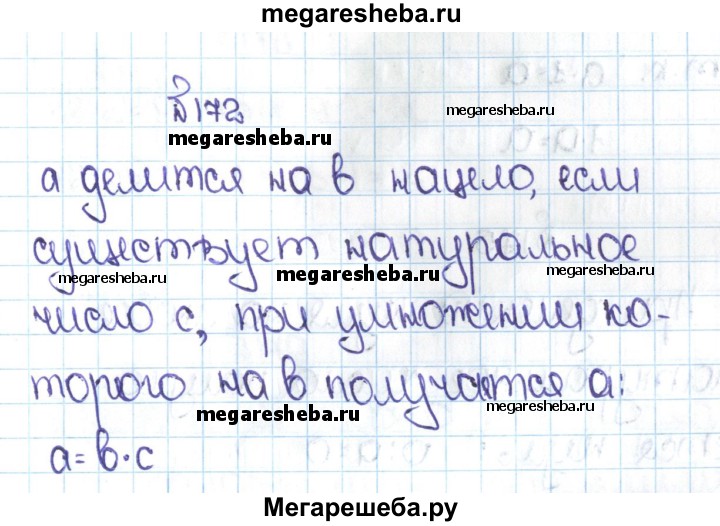 megaresheba.ru
№172
megaresheba.ru
megaresheba.ru
а делится на в нацело, если
существует натуральное
megaresheba.ru
megaresheba.ru
megaresheba.ru
число с, при умножении ко-
торого на в получается а:
megaresheba.ru
megaresheba.ru
а = в · с
Мегарешеба.ру